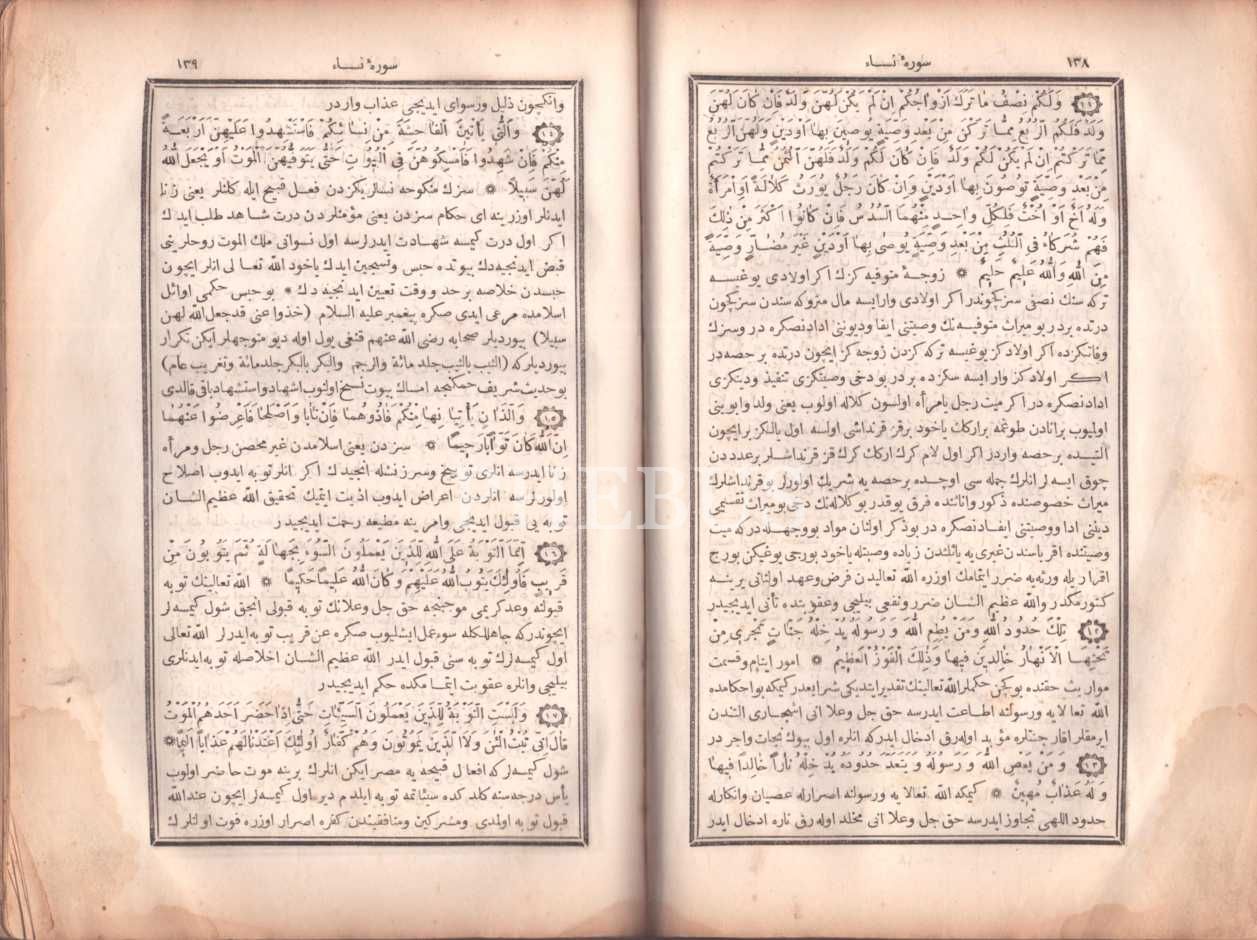 ١٣٨
سورهٔ نساء
١١ وَلَكُمْ نِصْفُ مَا تَرَكَ اَزْوَاجُكُمْ اِنْ لَمْ يَكُنْ لَهُنَّ وَلَدٌ فَاِنْ كَانَ لَهُنَّ
وَلَدٌ فَلَكُمُ الرُّبُعُ مِمَّا تَرَكْنَ مِنْ بَعْدِ وَصِيَّةٍ يُوصِينَ بِهَا اَوْدَيْنٍ وَلَهُنَّ الرُّبُعُ
مِمَّا تَرَكْتُمْ اِنْ لَمْ يَكُنْ لَكُمْ وَلَدٌ فَاِنْ كَانَ لَكُمْ وَلَدٌ فَلَهُنَّ الثُّمُنُ مِمَّا تَرَكْتُمْ
مِنْ بَعْدِ وَصِيَّةٍ تُوصُونَ بِهَا اَوْدَيْنٍ وَاِنْ كَانَ رَجُلٌ يُورَثُ كَلَالَةً اَوِامْرَاَةٌ
وَلَهُ اَخٌ اَوْ اُخْتٌ فَلِكُلِّ وَاحِدٍ مِنْهُمَا السُّدُسُ فَاِنْ كَانُوا اَكْثَرَ مِنْ ذٰلِكَ
فَهُمْ شُرَكَاءُ فِى الثُّلُثِ مِنْ بَعْدِ وَصِيَّةٍ يُوصٰى بِهَا اَوْدَيْنٍ غَيْرَ مُضَارٍّ وَصِيَّةً
مِنَ اللّٰهِ وَاللّٰهُ عَلِيمٌ حَلِيمٌ * زوجهٔ متوفيه كزك اكر اولادى يوغسه
تركه سنك نصفى سزكچوندر اكر اولادى وارايسه مال متروكه سندن سزكچون
درتده بردر بو ميراث متوفيه نك وصيتنى ايفا وديوننى ادادنصكره در وسزك
وفاتكزده اكر اولادكز يوغسه تركه كزدن زوجه كز ايچون درتده بر حصه در
اكر اولادكز وار ايسه سكزده بر در بو دخى وصيتكزى تنفيذ ودينكزى
ادادنصكره در اكر ميت رجل يامرأه اولسون كلاله اولوب يعنى ولد وابوينى
اولميوب برانادن طوغمه براركك ياخود برقز قرنداشى اولسه اول يالكز برايچون
التيده بر حصه واردر اكر اول لام كرك اركك كرك قز قرنداشلر برعددن
چوق ايسه لر انلرك جمله سى اوچده برحصه يه شريك اولورلر بوقرنداشلرك
ميراث خصوصنده ذكور واناثنده فرق يوقدر بو كلاله نك دخى بوميراث تقسيمى
دينى ادا ووصيتنى ايفادنصكره در بوذكر اولنان مواد بووجهله در كه ميت
وصيتنده اقرباسندن غيرى يه ثلثدن زياده وصيتله ياخود بورجى يوغيكن بورج
اقراريله ورثه يه ضرر ايتمامك اوزره اللّٰه تعاليدن فرض وعهد اولندى يرينه
كتورمكدر واللّٰه عظيم الشان ضرر ونفعى بيليجى وعقوبتده تأنى ايديجيدر
١٢ تِلْكَ حُدُودُ اللّٰهِ وَمَنْ يُطِعِ اللّٰهَ وَرَسُولَهُ يُدْخِلْهُ جَنَّاتٍ تَجْرِى مِنْ
تَحْتِهَا الْاَنْهَارُ خَالِدِينَ فِيهَا وَذٰلِكَ الْفَوْزُ الْعَظِيمُ * امور ايتام وقسمت
مواريث حقنده بو كچن حكملر اللّٰه تعالينك تقدير ايتديكى شرايعدر كيمكه بواحكامده
اللّٰه تعالا يه ورسولنه اطاعت ايدرسه حق جل وعلا انى اشجارى التندن
ايرمقلر اقار جنتلره مؤبد اوله رق ادخال ايدر كه انلره اول بيوك نجات واجر در
١٣ وَمَنْ يَعْصِ اللّٰهَ وَرَسُولَهُ وَيَتَعَدَّ حُدُودَهُ يُدْخِلْهُ نَارًا خَالِدًا فِيهَا
وَلَهُ عَذَابٌ مُهِينٌ * كيمكه اللّٰه تعالايه ورسولنه اصرارله عصيان وانكارله
حدود اللهى تجاوز ايدرسه حق جل وعلا انى مخلد اوله رق ناره ادخال ايدر
١٣٩
سورهٔ نساء
وانكچون ذليل ورسواى ايديجى عذاب واردر
١٤ وَالّٰتِى يَأْتِينَ الْفَاحِشَةَ مِنْ نِسَائِكُمْ فَاسْتَشْهِدُوا عَلَيْهِنَّ اَرْبَعَةً
مِنْكُمْ فَاِنْ شَهِدُوا فَاَمْسِكُوهُنَّ فِى الْبُيُوتِ حَتّٰى يَتَوَفّٰيهُنَّ الْمَوْتُ اَوْيَجْعَلَ اللّٰهُ
لَهُنَّ سَبِيلًا * سزك منكوحه نسالريكزدن فعل قبيح ايله كلنلر يعنى زنا
ايدنلر اوزرينه اى حكام سزدن يعنى مؤمنلردن درت شاهد طلب ايدك
اكر اول درت كيمسه شهادت ايدرلرسه اول نسوانى ملك الموت روحلرينى
قبض ايدنجيه دك بيوتده حبس وتسجين ايدك ياخود اللّٰه تعالى انلر ايچون
حبسدن خلاصه بر حد ووقت تعيين ايدنجيه دك * بوحبس حكمى اوائل
اسلامده مرعى ايدى صكره پيغمبر عليه السلام (خذوا عنى قدجعل اللّٰه لهن
سبيلا) بيورديلر صحابه رضى اللّٰه عنهم قنغى يول اوله ديو متوجهلر ايكن تكرار
بيورديلركه (الثيب بالثيب جلد مائة والرجم والبكر بالبكر جلدمائة وتغريب عام)
بوحديث شريف حكمنجه امساك بيوت نسخ اولنوب اشهاد واستشهاد باقى قالدى
١٥ وَالَّذَانِ يَأْتِيَانِهَا مِنْكُمْ فَاٰذُوهُمَا فَاِنْ تَابَا وَاَصْلَحَا فَاَعْرِضُوا عَنْهُمَا
اِنَّ اللّٰهَ كَانَ تَوَّابًا رَحِيمًا * سزدن يعنى اسلامدن غير محصن رجل ومرأه
زنا ايدرسه انلرى توبيخ وسرزنشله انجيدك اكر انلر توبه ايدوب اصلاح
اولورلرسه انلردن اعراض ايدوب اذيت ايتمك تحقيق اللّٰه عظيم الشان
توبه يى قبول ايديجى وامرينه مطيعه رحمت ايديجيدر
١٦ اِنَّمَا التَّوْبَةُ عَلَى اللّٰهِ لِلَّذِينَ يَعْمَلُونَ السُّوءَ بِجَهَالَةٍ ثُمَّ يَتُوبُونَ مِنْ
قَرِيبٍ فَاُولٰئِكَ يَتُوبُ اللّٰهُ عَلَيْهِمْ وَكَانَ اللّٰهُ عَلِيمًا حَكِيمًا * اللّٰه تعالينك توبه
قبولنه وعد كريمى موجبنجه حق جل وعلانك توبه قبولى انجق شول كيمسه لر
ايچوندركه جاهللكله سوءعمل ايشليوب صكره عن قريب توبه ايدرلر اللّٰه تعالى
اول كيمسه لرك توبه سنى قبول ايدر اللّٰه عظيم الشان اخلاصله توبه ايدنلرى
بيليجى وانلره عقوبت ايتمامكده حكم ايديجيدر
١٧ وَلَيْسَتِ التَّوْبَةُ لِلَّذِينَ يَعْمَلُونَ السَّيِّئَاتِ حَتّٰى اِذَا حَضَرَ اَحَدَهُمُ الْمَوْتُ
قَالَ اِنِّى تُبْتُ الْئٰنَ وَلَا الَّذِينَ يَمُوتُونَ وَهُمْ كُفَّارٌ اُولٰئِكَ اَعْتَدْنَا لَهُمْ عَذَابًا اَلِيمًا *
شول كيمسه لركه افعال قبيحه يه مصر ايكن انلرك برينه موت حاضر اولوب
يأس درجه سنه كلدكده سيئاتمه توبه ايلدم دير اول كيمسه لر ايچون عنداللّٰه
قبول توبه اولمدى ومشركين ومنافقيندن كفره اصرار اوزره فوت اولنلرك
PHEBUS